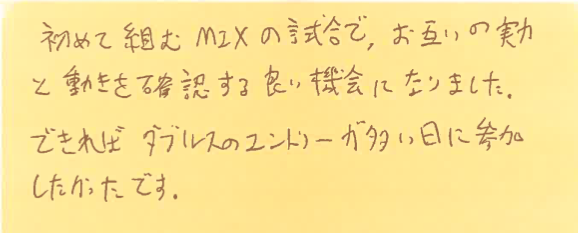 初めて組むMIXの試合で、お互いの実力
と動きを確認する良い機会になりました。
できればダブルスのエントリーが多い日に参加
したかったです。